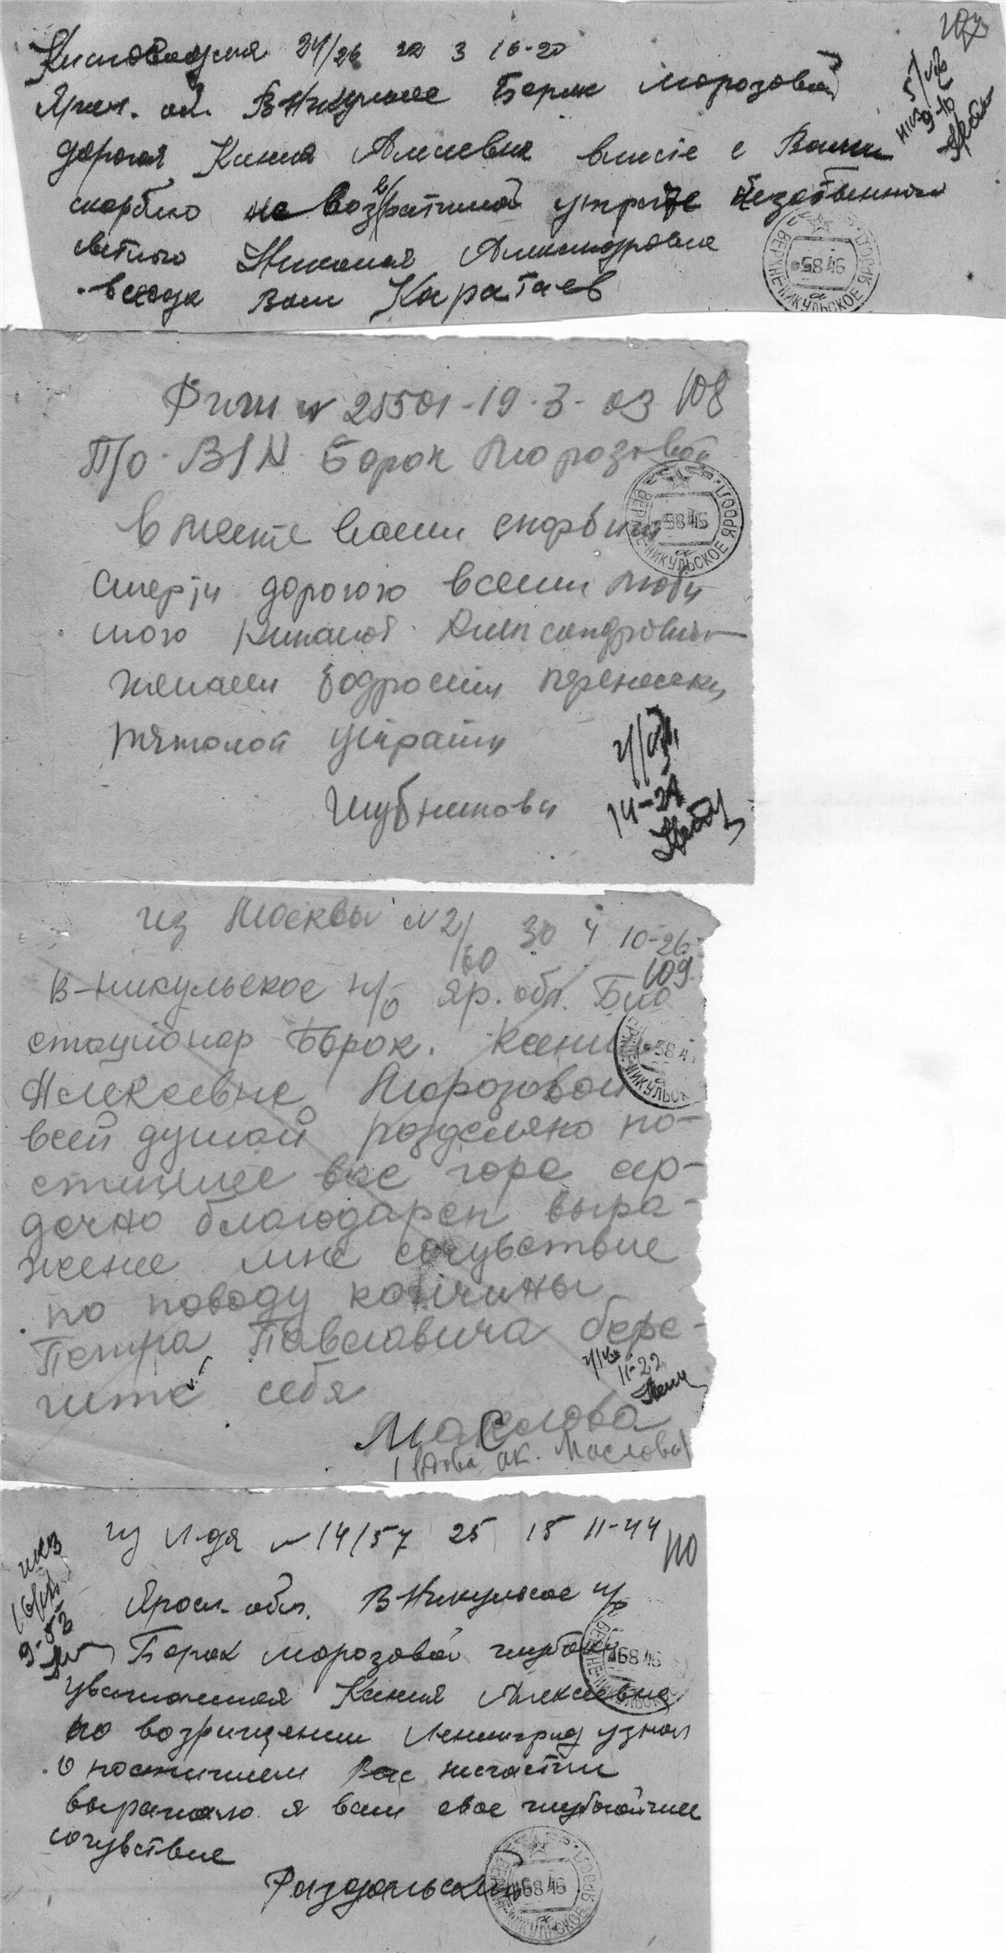 Кисловодская 24/26 га 3 16-20
107
Ярсл. обл. ВНикульское Борок Морозовой
дорогая Ксения Алксевна вместе с Вами
скорблю не возвратимой утрате незабвенного
светлого Николая Александровича
всегда ваш Каратаев
5/VIII
ВЕРХНЕ-НИКУЛЬСКОЕ ЯРОСЛ.
5846
Фиш № 25501-19-3-03 108
П/о В/Н Борок Морозовой
вместе вами скорбим
смерти дорогого всеми люби
мого Николая Александровича
желаем бодрости перенести
тяжолой утраты
Шубниковы
14-21
ВЕРХНЕ-НИКУЛЬСКОЕ ЯРОСЛ.
5846
из Москвы №2/60 30 4 10-26
109
В-Никульское п/о Яр. обл. Био
стационар Борок. Ксении
Алексевне Морозовой
всей душой разделяю по-
стигшее вас горе сер-
дечно благодарен выра-
жение мне сочувствие
по поводу кончины
Петра Павлавича бере-
гите себя
11-22
Маслова
(вдова ак. Маслова)
из Л-да № 14/57 25 15 11-44
110
Яросл. обл. ВНикульское п/о
Борок Морозовой глубоко
уважаемая Ксения Алексевна
по возрищении Ленинград узнал
о постигшем Вас несчастии
выражаю я вам свое глубочайшее
сочувствие
Раздольский
6846
ВЕРХНЕ-НИКУЛЬСКОЕ ЯРОСЛ.
6846